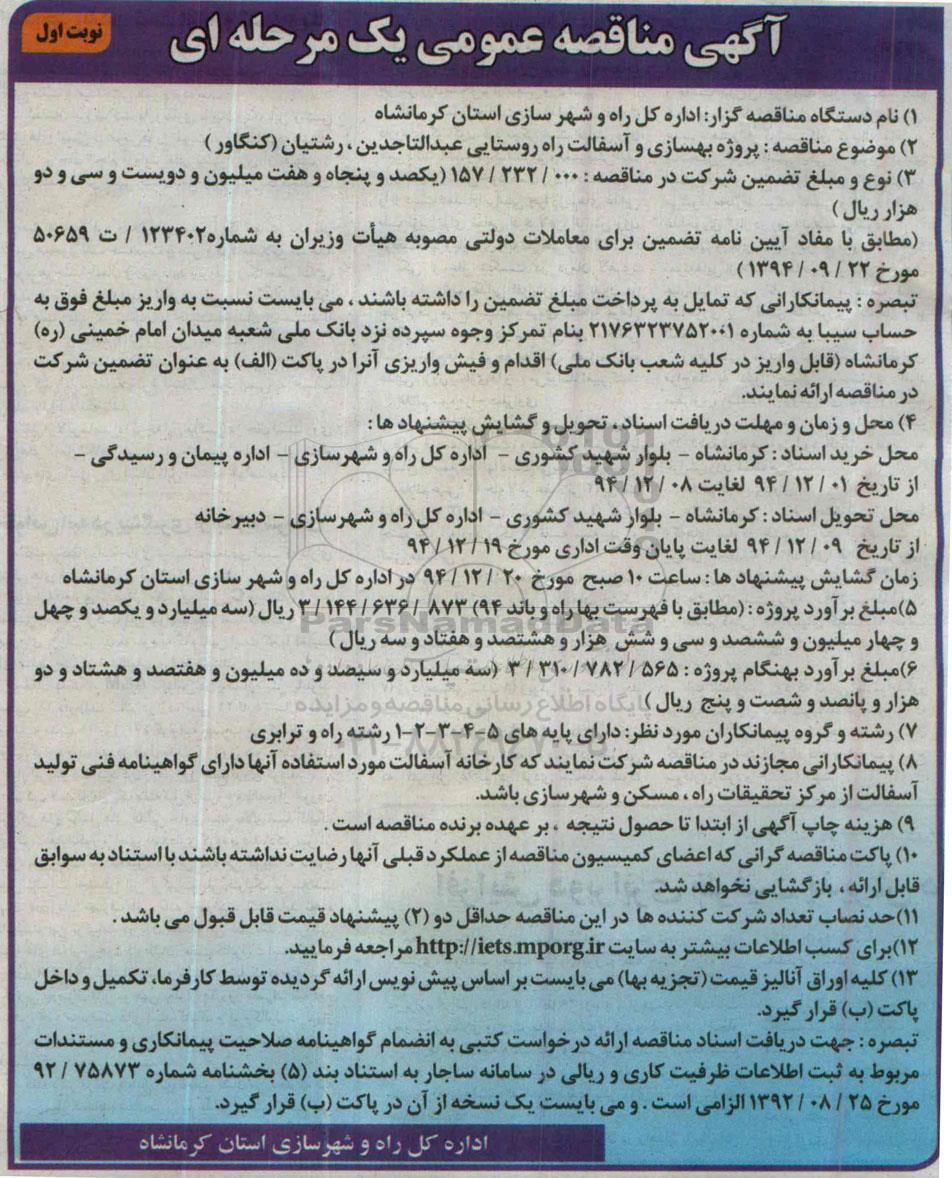 آگهی مناقصه عمومی یک مرحله ای
نوبت اول
۱) نام دستگاه مناقصه گزار: اداره کل راه و شهر سازی استان کرمانشاه
۲) موضوع مناقصه : پروژه بهسازی و آسفالت راه روستایی عبدالتاجدین ، رشتیان (کنگاور )
۳) نوع و مبلغ تضمین شرکت در مناقصه : ۰۰۰ / ۲۳۲ / ۱۵۷ (یکصد و پنجاه و هفت میلیون و دویست و سی و دو
هزار ریال )
(مطابق با مفاد آیین نامه تضمین برای معاملات دولتی مصوبه هیأت وزیران به شماره۱۲۳۴۰۲ / ت ۵۰۶۵۹
مورخ ۲۲ / ۰۹ / ۱۳۹۴ )
تبصره : پیمانکارانی که تمایل به پرداخت مبلغ تضمین را داشته باشند ، می بایست نسبت به واریز مبلغ فوق به
حساب سیبا به شماره ۲۱۷۶۳۲۳۷۵۲۰۰۱ بنام تمرکز وجوه سپرده نزد بانک ملی شعبه میدان امام خمینی (ره)
کرمانشاه (قابل واریز در کلیه شعب بانک ملی) اقدام و فیش واریزی آنرا در پاکت (الف) به عنوان تضمین شرکت
در مناقصه ارائه نمایند.
۴) محل و زمان و مهلت دریافت اسناد ، تحویل و گشایش پیشنهاد ها :
محل خرید اسناد : کرمانشاه - بلوار شهید کشوری - اداره کل راه و شهرسازی - اداره پیمان و رسیدگی -
از تاریخ ۰۱ / ۱۲ / ۹۴ لغایت ۰۸ / ۱۲ / ۹۴
محل تحویل اسناد : کرمانشاه - بلوار شهید کشوری - اداره کل راه و شهرسازی - دبیرخانه
از تاریخ ۰۹ / ۱۲ / ۹۴ لغایت پایان وقت اداری مورخ ۱۹ / ۱۲ / ۹۴
زمان گشایش پیشنهاد ها : ساعت ۱۰ صبح مورخ ۲۰ / ۱۲ / ۹۴ در اداره کل راه و شهر سازی استان کرمانشاه
۵)مبلغ بر آورد پروژه : (مطابق با فهرست بها راه و باند ۹۴) ۸۷۳ / ۶۳۶ / ۱۴۴ / ۳ ریال (سه میلیارد و یکصد و چهل
و چهار میلیون و ششصد و سی و شش هزار و هشتصد و هفتاد و سه ریال )
۶)مبلغ بر آورد بهنگام پروژه : ۵۶۵ / ۷۸۲ / ۳۱۰ / ۳ (سه میلیارد و سیصد و ده میلیون و هفتصد و هشتاد و دو
هزار و پانصد و شصت و پنج ریال )
۷) رشته و گروه پیمانکاران مورد نظر: دارای پایه های ۵-۴-۳-۲-۱ رشته راه و ترابری
۸) پیمانکارانی مجازند در مناقصه شرکت نمایند که کارخانه آسفالت مورد استفاده آنها دارای گواهینامه فنی تولید
آسفالت از مرکز تحقیقات راه ، مسکن و شهرسازی باشد.
۹) هزینه چاپ آگهی از ابتدا تا حصول نتیجه ، بر عهده برنده مناقصه است .
۱۰) پاکت مناقصه گرانی که اعضای کمیسیون مناقصه از عملکرد قبلی آنها رضایت نداشته باشند با استناد به سوابق
قابل ارائه ، بازگشایی نخواهد شد.
۱۱)حد نصاب تعداد شرکت کننده ها در این مناقصه حداقل دو (۲) پیشنهاد قیمت قابل قبول می باشد .
۱۲)برای کسب اطلاعات بیشتر به سایت http://iets.mporg.ir مراجعه فرمایید.
۱۳) کلیه اوراق آنالیز قیمت (تجزیه بها) می بایست بر اساس پیش نویس ارائه گردیده توسط کارفرما، تکمیل و داخل
پاکت (ب) قرار گیرد.
تبصره : جهت دریافت اسناد مناقصه ارائه درخواست کتبی به انضمام گواهینامه صلاحیت پیمانکاری و مستندات
مربوط به ثبت اطلاعات ظرفیت کاری و ریالی در سامانه ساجار به استناد بند (۵) بخشنامه شماره ۷۵۸۷۳ / ۹۲
مورخ ۲۵ / ۰۸ / ۱۳۹۲ الزامی است . و می بایست یک نسخه از آن در پاکت (ب) قرار گیرد.
اداره کل راه و شهرسازی استان کرمانشاه
ParsNamadData
پایگاه اطلاع رسانی مناقصه و مزایده